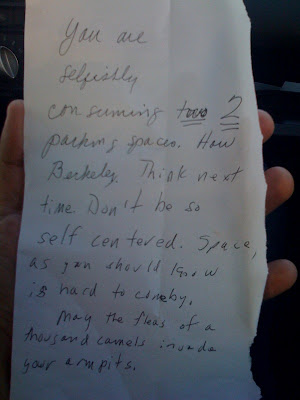 You are
selfishly
consuming two 2
parking spaces. How
Berkeley. Think next
time. Don't be so
self centered. Space,
as you should know
is hard to comeby.
May the fleas of a
thousand camels invade
your armpits.